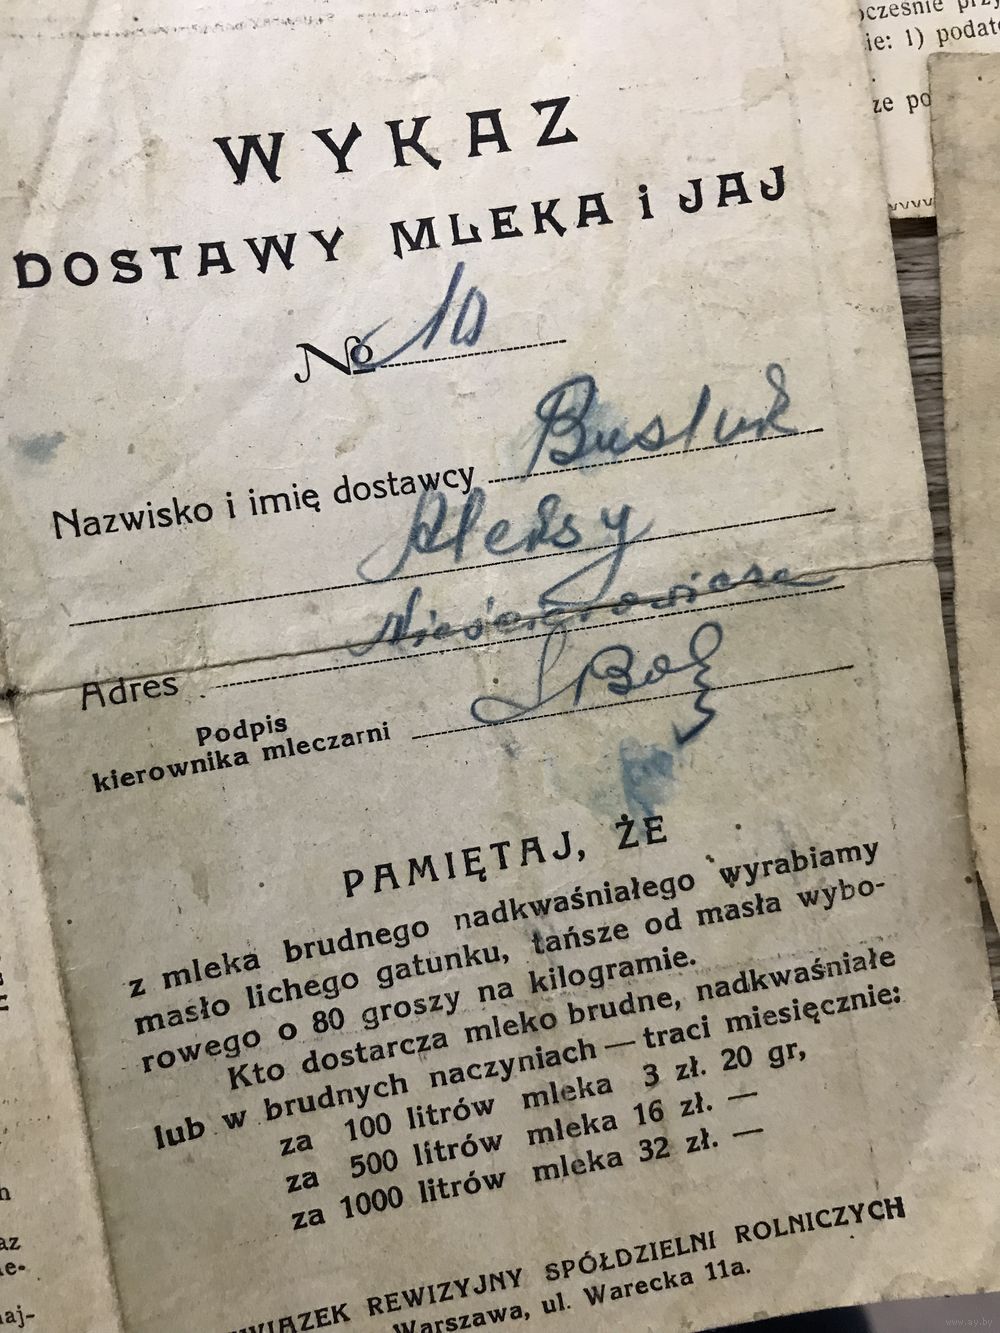 ocześnie
ie: 1)
ze
WYKAZ
DOSTAWY MLEKA i JAJ
№ 10
Nazwisko i imię dostawcy Busluk
Aleksy
Adres
Podpis
kierownika mleczarni
PAMIĘTAJ, ŻE
z mleka brudnego nadkwaśniałego wyrabiamy
masło lichego gatunku, tańsze od masła wybo-
rowego o 80 groszy na kilogramie.
Kto dostarcza mleko brudne, nadkwaśniałe
lub w brudnych naczyniach — traci miesięcznie:
za 100 litrów mleka 3 zł. 20 gr,
za 500 litrów mleka 16 zł. —
za 1000 litrów mleka 32 zł. —
WIĄZEK REWIZYJNY SPÓŁDZIELNI ROLNICZYCH
Warszawa, ul. Warecka 11a.
www.ay.by